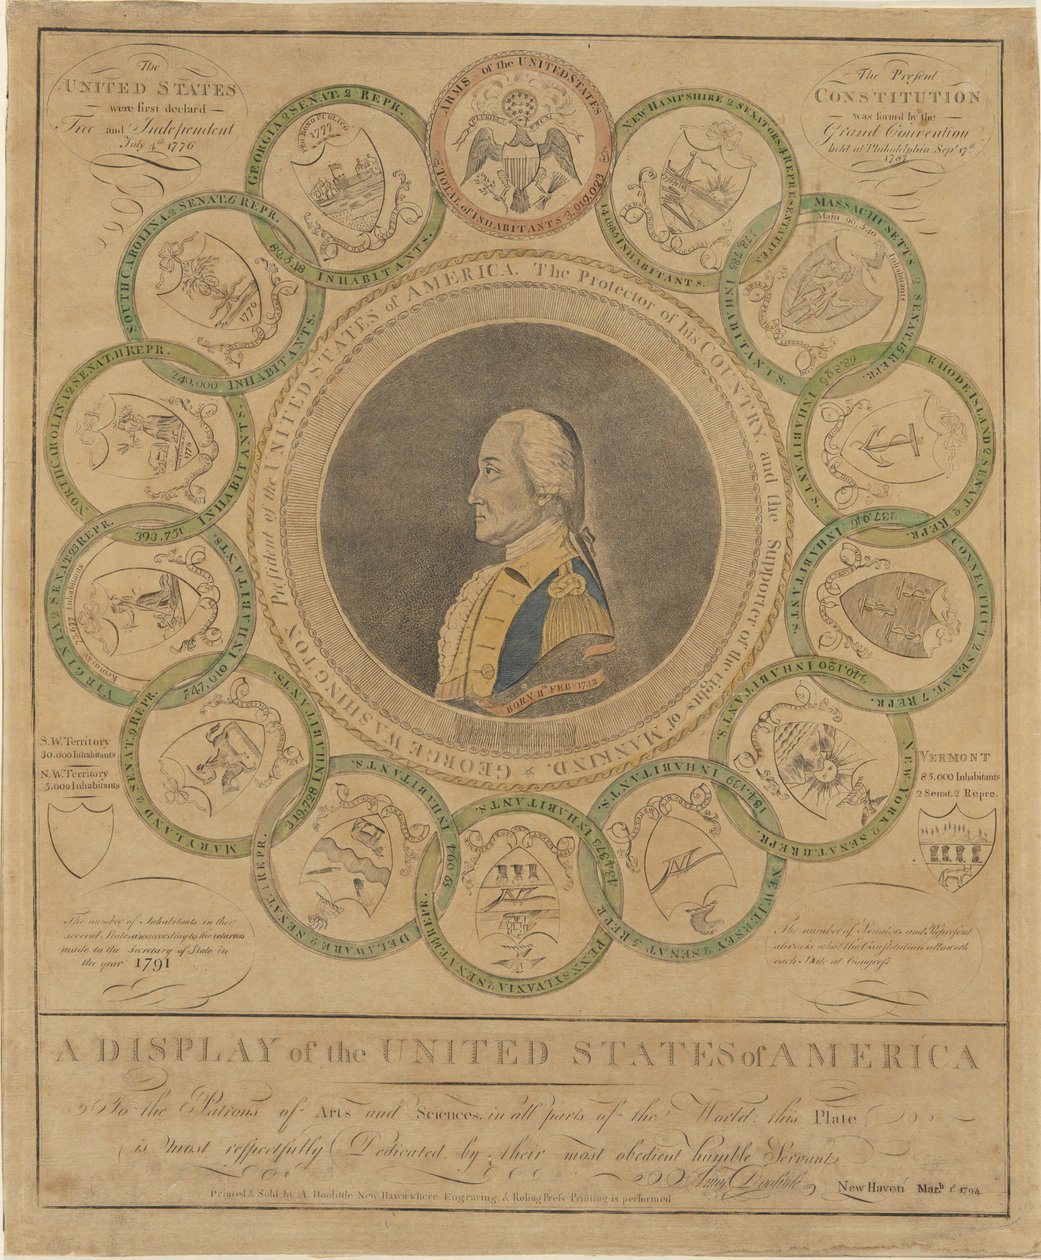 The
UNITED STATES
were first declared
Free and Independent
July 4th 1776
The Present
CONSTITUTION
was form'd by the
Grand Convention
held at Philadelphia Sept. 17th
1787
ARMS of the UNITED STATES
E PLURIBUS UNUM
TOTAL of INHABITANTS 3,919,023
NEW HAMPSHIRE 2 SENATORS, 4 REPRESENTATIVES
141,885 INHABITANTS.
MASSACHUSETTS 2 SENAT. 15 REPR.
378,787 INHABITANTS.
Main 96,540 Inhabitants
RHODE ISLAND 2 SENAT. 2 REPR.
68,825 INHABITANTS.
CONNECTICUT 2 SENAT. 7 REPR.
237,946 INHABITANTS.
NEW YORK 2 SENAT. 10 REPR.
340,120 INHABITANTS.
NEW JERSEY 2 SENAT. 5 REPR.
184,139 INHABITANTS.
PENNSYLVANIA 2 SENAT. 13 REPR.
434,373 INHABITANTS.
DELAWARE 2 SENAT. 1 REPR.
59,094 INHABITANTS.
MARYLAND 2 SENAT. 9 REPR.
319,728 INHABITANTS.
VIRGINIA 2 SENAT. 23 REPR.
747,610 INHABITANTS.
Kentucky
Inhabitants
NORTH CAROLINA 2 SENAT. 11 REPR.
393,751 INHABITANTS.
1776
SOUTH CAROLINA 2 SENAT. 6 REPR.
240,000 INHABITANTS.
1776
GEORGIA 2 SENAT. 2 REPR.
82,548 INHABITANTS.
PRO BONO PUBLICO
1777
GEORGE WASHINGTON President of the UNITED STATES of AMERICA. The Protector of his COUNTRY, and the Supporter of the rights of MANKIND.
BORN 11th FEB. 1732
S.W. Territory
30,000 Inhabitants
N.W. Territory
5,000 Inhabitants
VERMONT
85,000 Inhabitants
2 Senat. 2 Repre.
The number of Inhabitants in the
several States is according to the returns
made to the Secretary of State in
the year 1791
The number of Senators and Represent
above is what the Constitution alloweth
each State at Congress
A DISPLAY of the UNITED STATES of AMERICA
To the Patrons of Arts and Sciences, in all parts of the World, this Plate
is most respectfully Dedicated, by their most obedient humble Servant,
Amos Doolittle
New Haven Mar.h 1st 1794
Printed & Sold by A. Doolittle New Haven where Engraving, & Roling Press Printing is performed